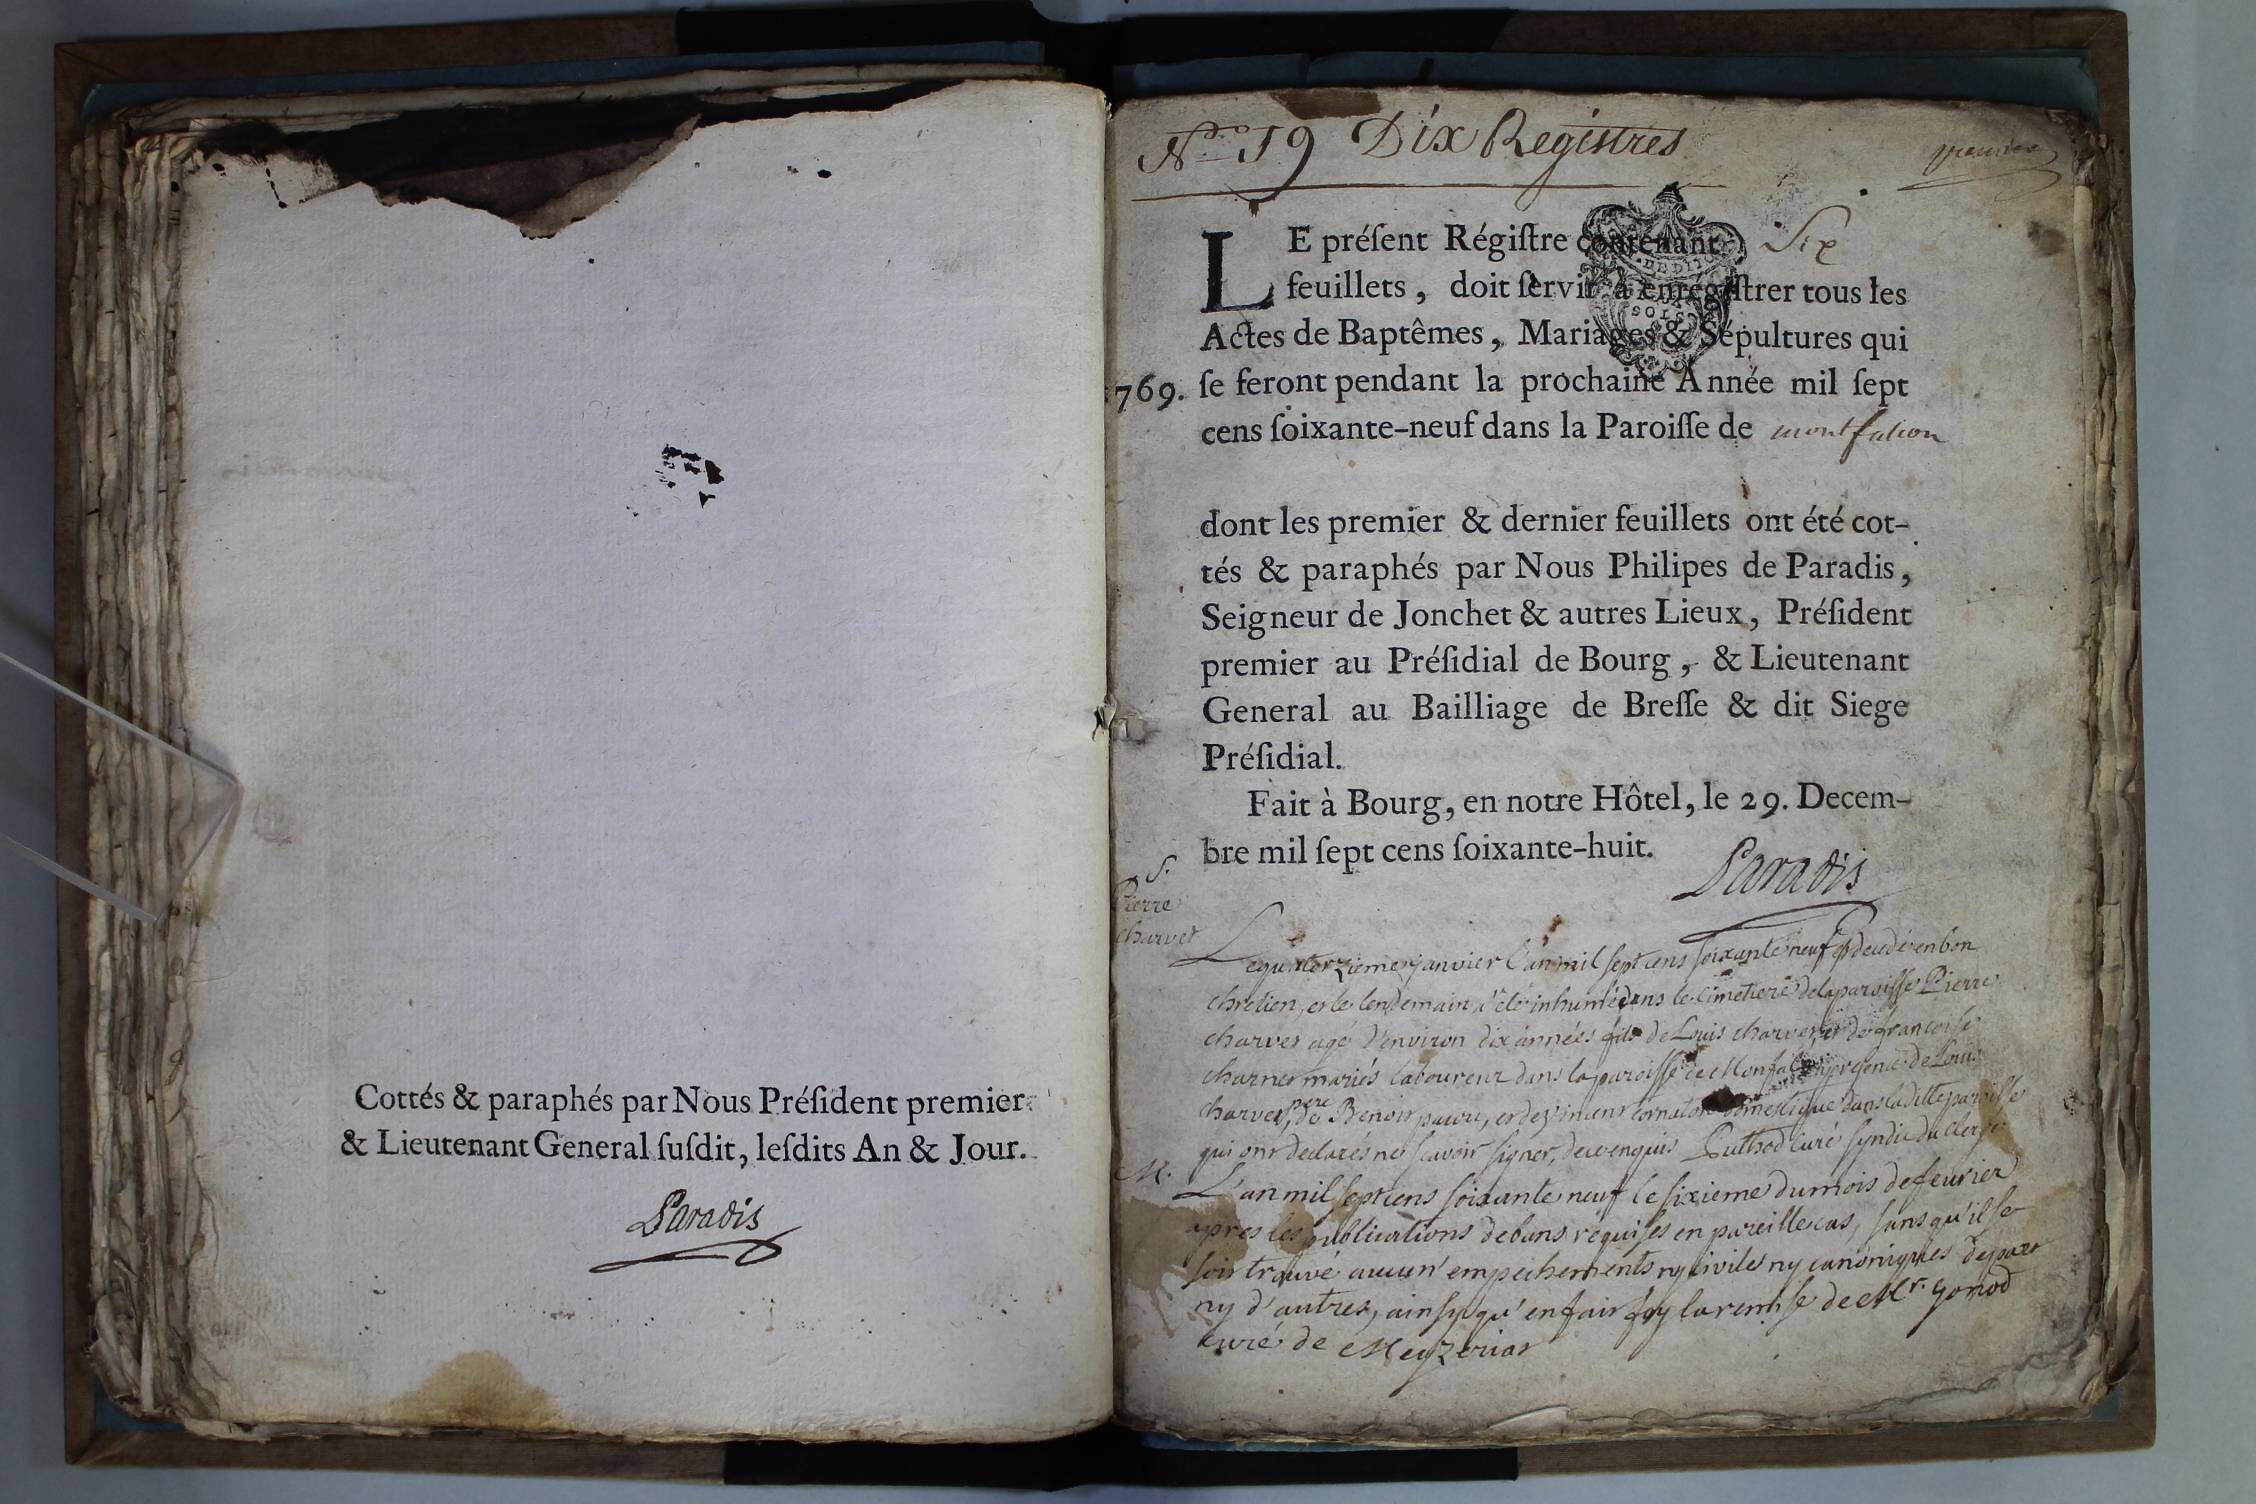 Cottés & paraphés par Nous Préſident premier
& Lieutenant General ſuſdit, leſdits An & Jour.
Paradis
No. 19 Dix Registres
premier
LE préſent Régiſtre contenant Six
feuillets, doit ſervir à enrégiſtrer tous les
Actes de Baptêmes, Mariages & Sépultures qui
1769. ſe feront pendant la prochaine Année mil ſept
cens ſoixante-neuf dans la Paroiſſe de montfalcon
dont les premier & dernier feuillets ont été cot-
tés & paraphés par Nous Philipes de Paradis,
Seigneur de Jonchet & autres Lieux, Préſident
premier au Préſidial de Bourg, & Lieutenant
General au Bailliage de Breſſe & dit Siege
Préſidial.
Fait à Bourg, en notre Hôtel, le 29. Decem-
bre mil ſept cens ſoixante-huit.
Paradis
S.
Pierre
charvet
Le quatorzieme janvier l'an mil sept cens soixante neuf est decedé en bon
chretien, et le lendemain a été inhumé dans le cimetiere de la paroisse Pierre
charvet agé d'environ dix années fils de Louis charvet et de françoise
mariés laboureur dans la paroisse de Monfalcon presence de Louis
charvet, pere de Benoit et de domestique dans la ditte paroisse
qui ont declarés ne scavoir signer, de ce enquis Puthod Curé syndic du clergé
M.
L'an mil sept cens soixante neuf le sixieme du mois de fevrier
apres les publications de bans requises en pareille cas, sans qu'il se
soit trouvé aucun empechements ny civile ny canoniques de part
ny d'autres, ainsy qu'en fait foy la remise de Mr. gonod
curé de Meyzeriat